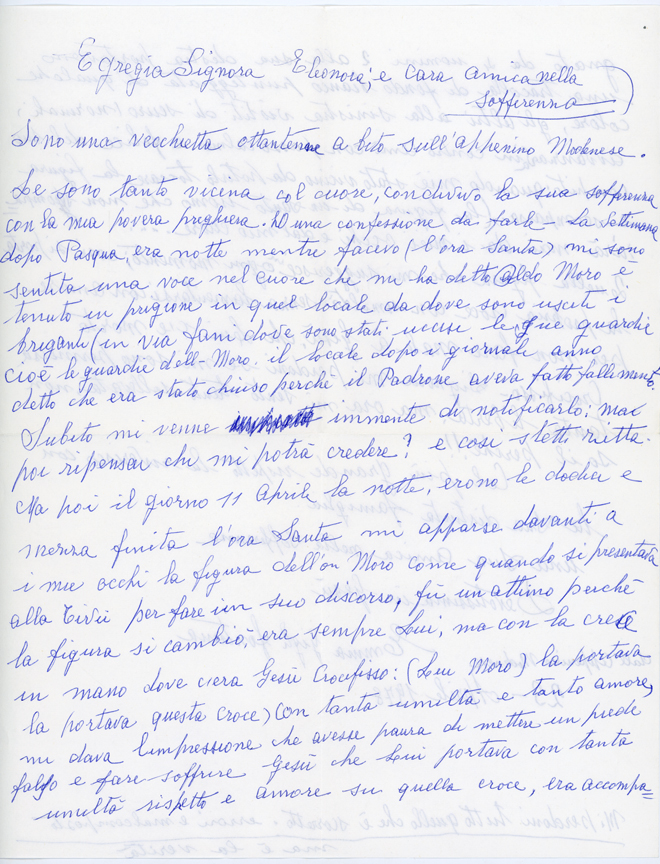 Egregia Signora Eleonora, e cara amica nella
sofferenza
Sono una vecchietta ottantenne abito sull'appenino Modenese.
Le sono tanto vicina col cuore, condivivo la sua sofferenza
con la mia povera preghiera. Ho una confessione da farle - La Settimana
dopo Pasqua, era notte mentre facevo (l'ora Santa) mi sono
sentita una voce nel cuore che mi ha detto Aldo Moro è
tenuto in prigione in quel locale da dove sono usciti i
briganti (in via fani dove sono stati uccise le guardie
cioè le guardie dell-Moro, il locale dopo i giornali anno
detto che era stato chiuso perchè il Padrone aveva fatto fallimento.
Subito mi venne immente di notificarlo; mai
poi ripensai chi mi potrà credere? e così stetti zietta.
Ma poi il giorno 11 Aprile la notte, erono le dodici e
mezza finita l'ora Santa mi apparse davanti a
i mie occhi la figura dell'on Moro come quando si presentava
alla Tivù per fare un suo discorso, fù un attimo perchè
la figura si cambiò, era sempre Lui, ma con la croce
in mano dove c'era Gesù Crocifisso: (Lui Moro) la portava
la portava questa croce) con tanta umiltà e tanto amore,
mi dava l'impressione che avesse paura di mettere un piede
falso e fare soffrire Gesù che Lui portava con tanta
umiltà rispetto e amore su quella croce, era accompa=